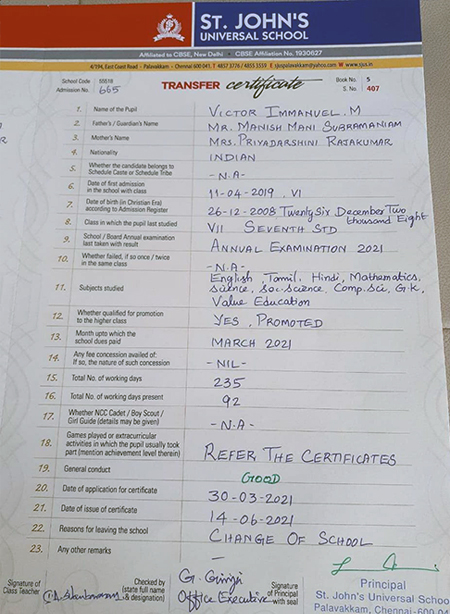 ST. JOHN'S
UNIVERSAL SCHOOL
Affiliated to CBSE, New Delhi • CBSE Affiliation No. 1930627
4/194, East Coast Road - Palavakkam - Chennai 600 041. T 4857 3776 / 4855 5559 E sjuspalavakkam@yahoo.com W www.sjus.in
School Code 55518
Book No. 5
TRANSFER certificate
Admission No. 665
S. No. 407
1. Name of the Pupil VICTOR IMMANUEL.M
2. Father's / Guardian's Name MR. MANISH MANI SUBRAMANIAM
3. Mother's Name MRS. PRIYADARSHINI RAJAKUMAR
4. Nationality INDIAN
5. Whether the candidate belongs to
Schedule Caste or Schedule Tribe -N.A-
6. Date of first admission
in the school with class 11-04-2019, VI
7. Date of birth (in Christian Era)
according to Admission Register 26-12-2008 Twenty Six December Two
thousand Eight
8. Class in which the pupil last studied VII SEVENTH STD
9. School / Board Annual examination
last taken with result ANNUAL EXAMINATION 2021
10. Whether failed, if so once / twice
in the same class -N.A-
11. Subjects studied English, Tamil, Hindi, Mathematics,
Science, Soc.Science, Comp.Sci, G.K,
Value Education
12. Whether qualified for promotion
to the higher class YES, PROMOTED
13. Month upto which the
school dues paid MARCH 2021
14. Any fee concession availed of:
If so, the nature of such concession -NIL-
15. Total No. of working days 235
16. Total No. of working days present 92
17. Whether NCC Cadet / Boy Scout /
Girl Guide (details may be given) -N.A-
18. Games played or extracurricular
activities in which the pupil usually took
part (mention achievement level therein) REFER THE CERTIFICATES
19. General conduct GOOD
20. Date of application for certificate 30-03-2021
21. Date of issue of certificate 14-06-2021
22. Reasons for leaving the school CHANGE OF SCHOOL
23. Any other remarks –
Signature of
Class Teacher
Checked by
(state full name
& designation)
Office Executive
Signature
of Principal
with seal
Principal
St. John's Universal Schoo
Palavakkam, Chennai-600 04